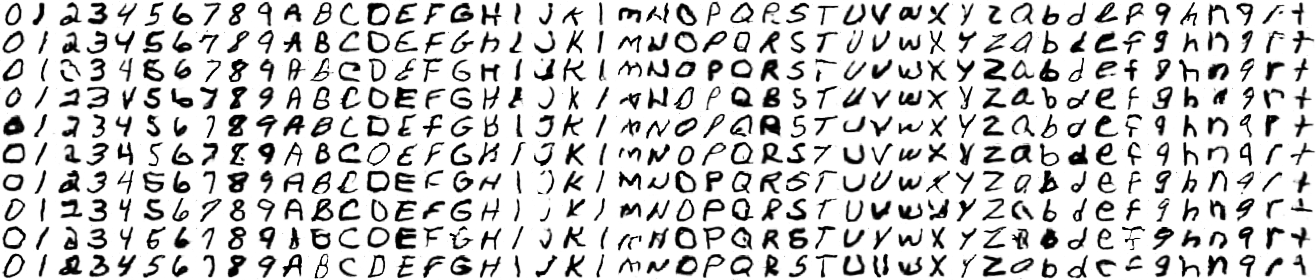 0 1 2 3 4 5 6 7 8 9 A B C D E F G H I J K l m N O P Q R S T U V w X Y Z a b d e f g h n q r t
0 1 2 3 4 5 6 7 8 9 A B C D E F G H I J K l M N O P Q R S T U V W X Y Z a b d e f g h n q r t
0 1 2 3 4 5 6 7 8 9 A B C D E F G H I J K l m N O P Q R S T U V w X Y Z a b d e f g h n q r t
0 1 2 3 4 5 6 7 8 9 A B C D E F G H I J K l m N O P Q R S T U V w X Y Z a b d e f g h n q r t
0 1 2 3 4 5 6 7 8 9 A B C D E f G H I J K l m N O P Q R S T U V w X Y Z a b d e f g h n q r t
0 1 2 3 4 5 6 7 8 9 A B C O E F G H I J K l m N O P Q R S T U V w X Y Z a b d e f g h n q r t
0 1 2 3 4 5 6 7 8 9 A B C D E F G H I J K l M N O P Q R S T U U w X Y Z a b d e f g h n q r t
0 1 2 3 4 5 6 7 8 9 A B C D E F G H I J K l M N O P Q R S T U V w X Y Z a b d e f g h n q r t
0 1 2 3 4 5 6 7 8 9 A B C D E F G H I J K l m N O P Q R S T U V w X Y Z a b d e f g h n q r t
0 1 2 3 4 5 6 7 8 9 A B C D E F G H I J K l m N O P Q R S T U V w X Y Z a b d e f g h n q r t